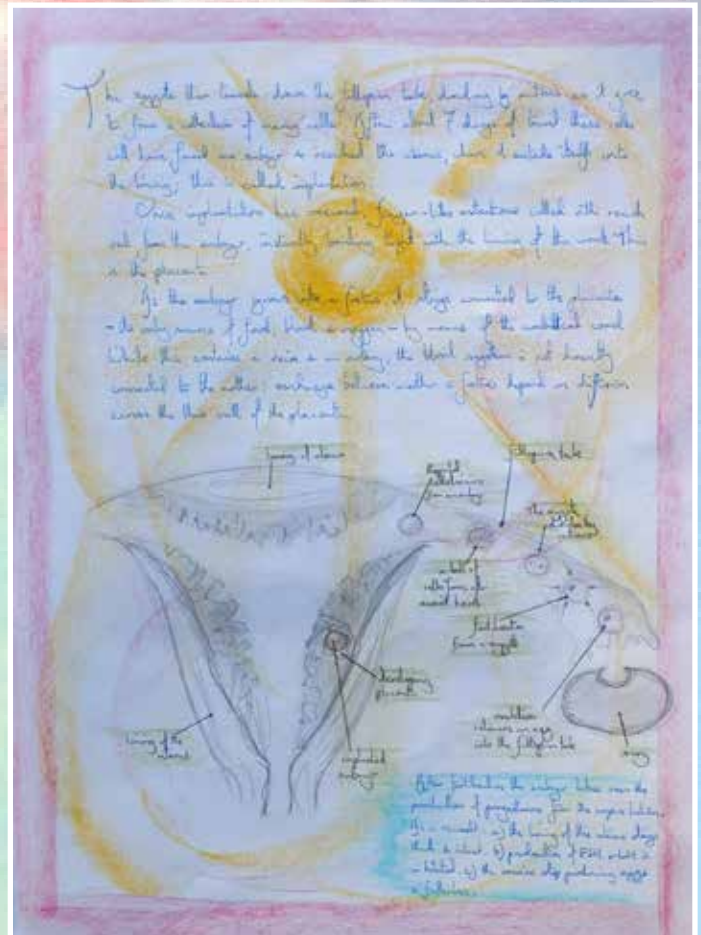 The zygote then travels down the fallopian tube, dividing by mitosis as it goes
to form a collection of many cells. After about 7 days of travel these cells
will have formed an embryo & reached the uterus, where it embeds itself into
the lining; this is called implantation.
Once implantation has occurred, finger-like extensions called villi reach
out from the embryo, intimately bonding itself with the lining of the womb. This
is the placenta.
As the embryo grows into a foetus it stays connected to the placenta
- its only source of food, blood & oxygen - by means of the umbilical cord.
While this contains a vein & an artery, the blood system is not directly
connected to the mother: exchanges between mother & foetus depend on diffusion
across the thin wall of the placenta.
lining of uterus
fallopian tube
for embryo
The zygote
divides by
mitosis
a ball of
cells forms
fertilisation
forms a zygote
developing
placenta
implanted
embryo
lining of the
uterus
ovulation
releases an egg
into the fallopian tube
ovary
After fertilisation the embryo takes over the
production of progesterone from the corpus luteum.
As a result: a) the lining of the uterus stays
thick & intact b) production of FSH & LH is
inhibited c) the ovaries stop producing eggs
& follicles.